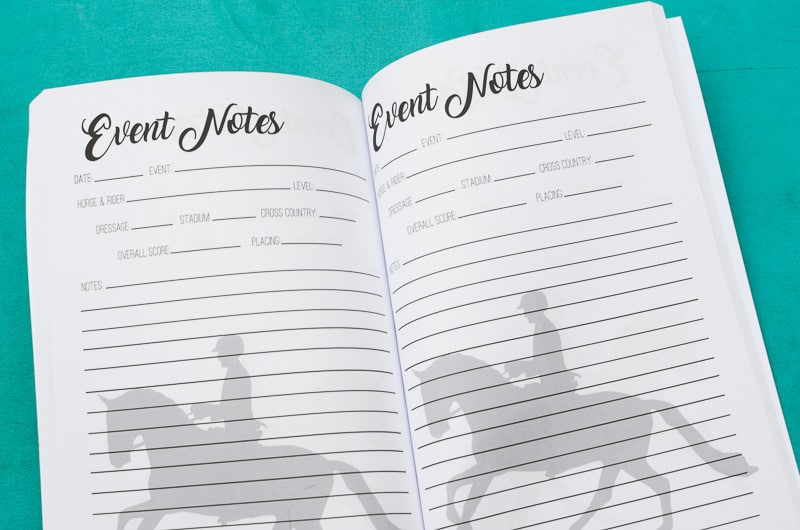 Event Notes
DATE: EVENT:
HORSE & RIDER LEVEL:
DRESSAGE: STADIUM: CROSS COUNTRY:
OVERALL SCORE: PLACING
NOTES:
Event Notes
EVENT:
HORSE & RIDER LEVEL:
DRESSAGE: STADIUM: CROSS COUNTRY:
OVERALL SCORE: PLACING:
NOTES: